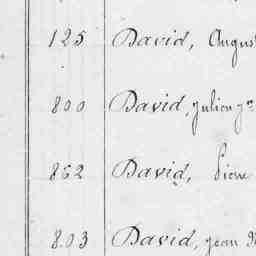 125 David, August
800 David, Julien
862 David, Pierre
803 David, Jean